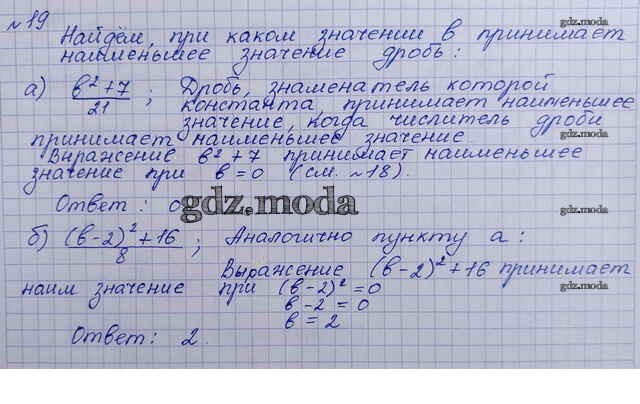 №19
gdz.moda
Найдём, при каком значении в принимает
наименьшее значение дробь:
gdz.moda
а) (в²+7)/21 ; Дробь, знаменатель которой
константа, принимает наименьшее
значение, когда числитель дроби
gdz.moda
принимает наименьшее значение
Выражение в²+7 принимает наименьшее
значение при в=0 (см. №18).
gdz.moda
Ответ: 0
gdz.moda
gdz.moda
б) ((в-2)²+16)/8 ; Аналогично пункту а:
Выражение (в-2)²+16 принимает
наим значение при (в-2)²=0
gdz.moda
в-2=0
в=2
Ответ: 2.